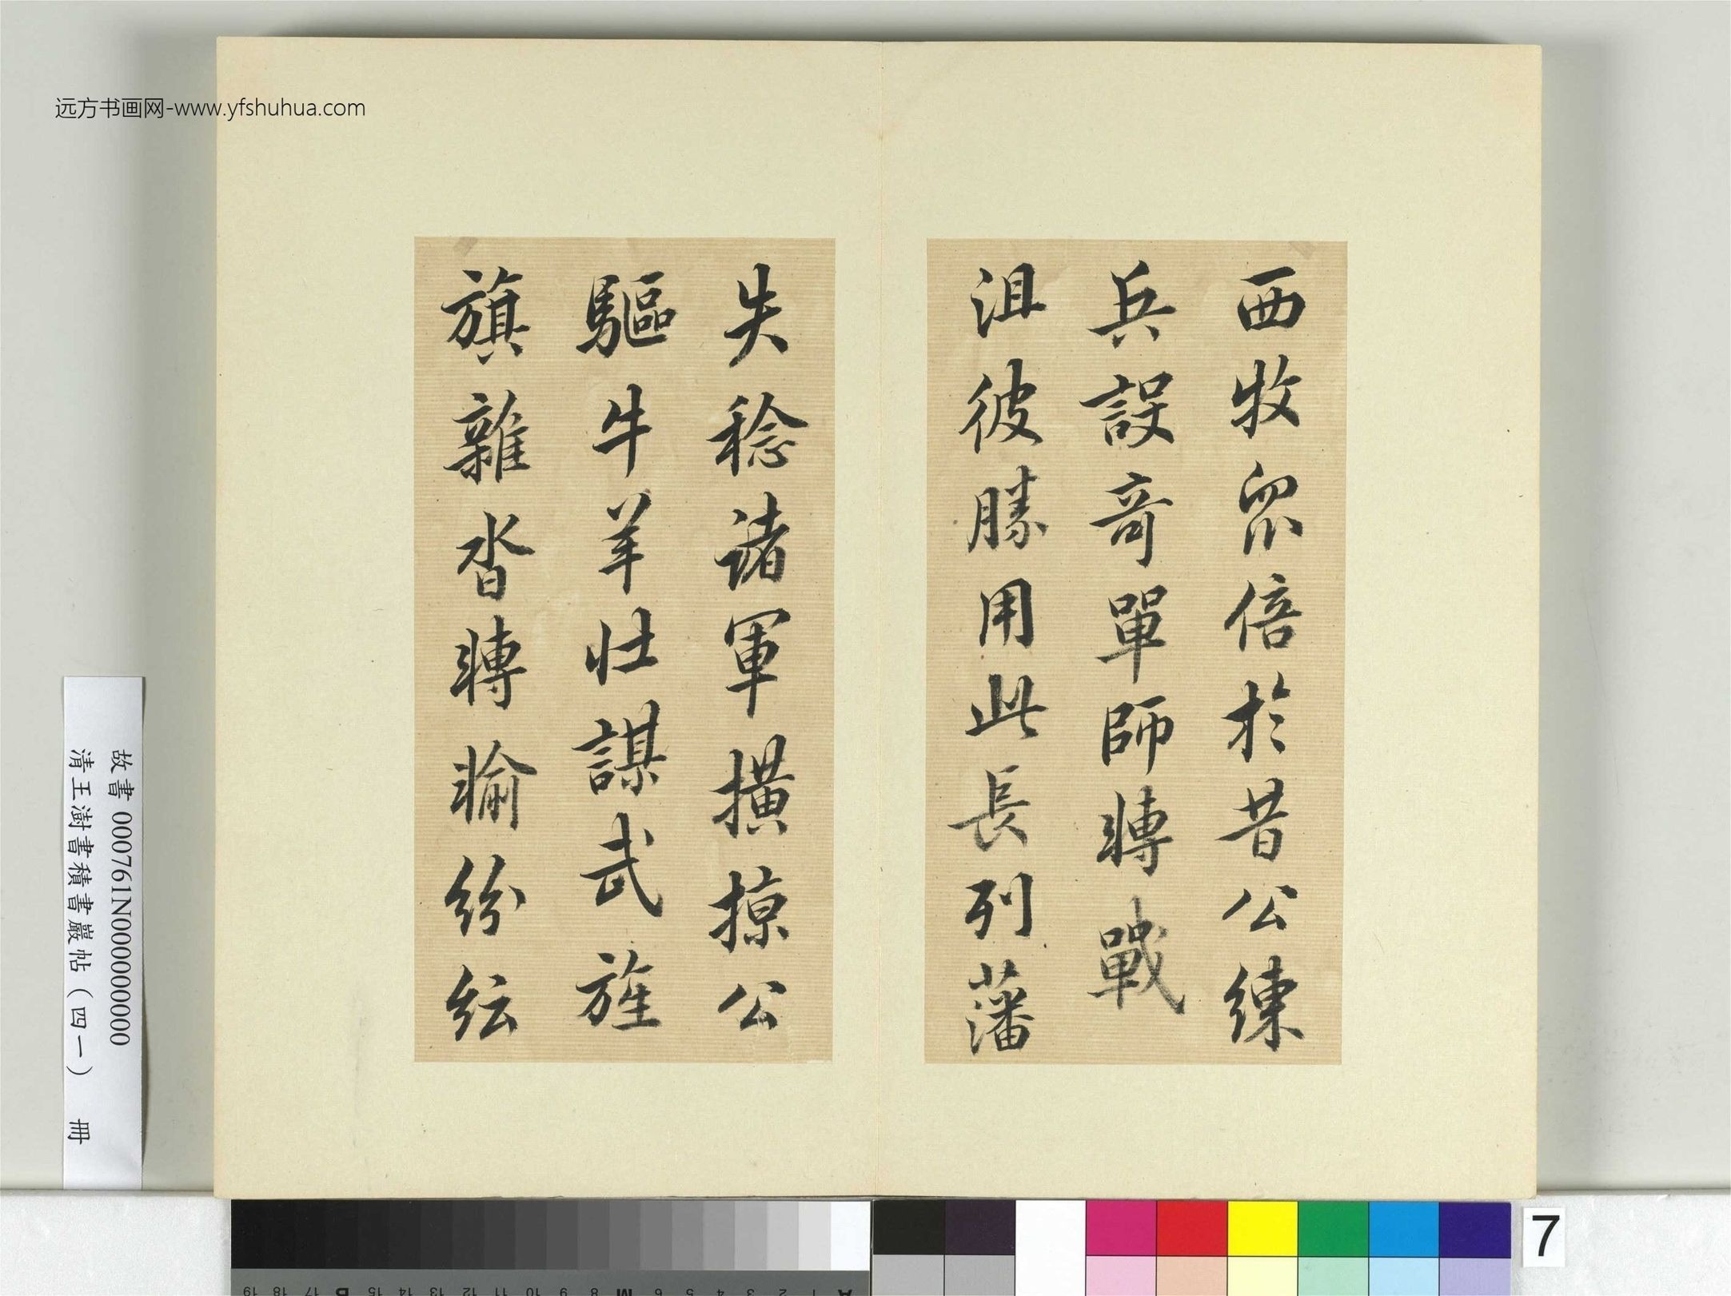 远方书画网-www.yfshuhua.com
西牧眾倍於昔公練
兵誤奇單師轉戰
沮彼勝用此長列藩
失稔諸軍擄掠公
驅牛羊壯謀武旌
旗雜沓轉輸紛紜
故書 000761N000000000
清王澍書積書巖帖（四一） 冊
7